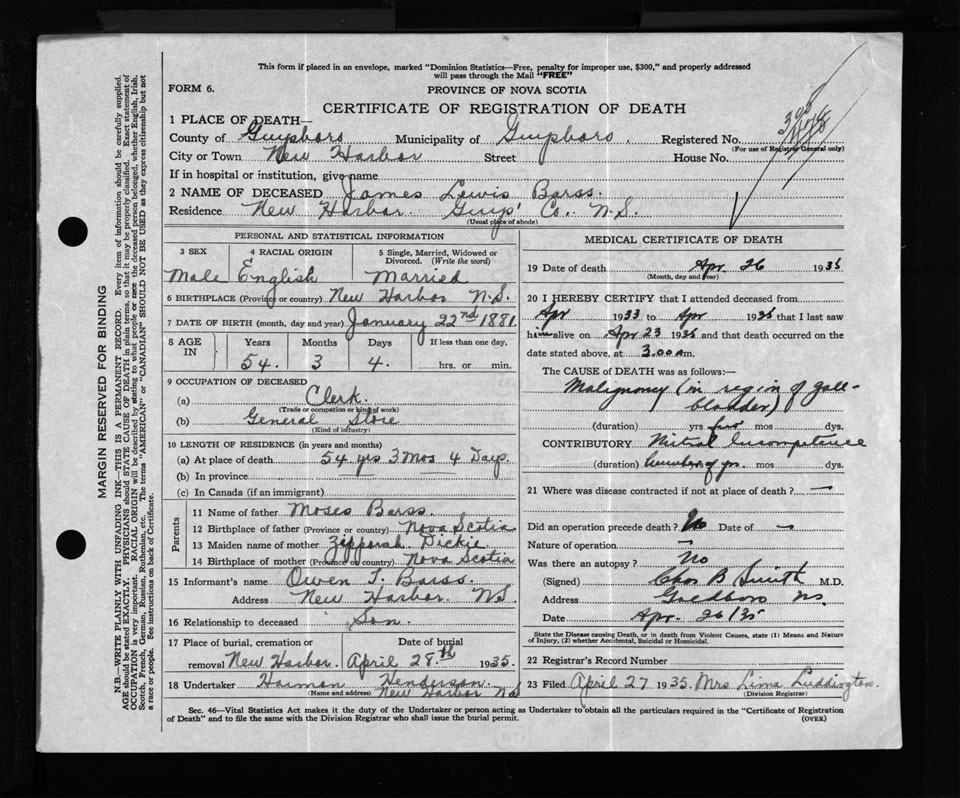 This form if placed in an envelope, marked "Dominion Statistics—Free, penalty for improper use, $300," and properly addressed
will pass through the Mail "FREE"
FORM 6. PROVINCE OF NOVA SCOTIA
CERTIFICATE OF REGISTRATION OF DEATH
1 PLACE OF DEATH—
County of Guysboro Municipality of Guysboro. Registered No.
(For use of Registrar General only)
City or Town New Harbor Street House No.
If in hospital or institution, give name
2 NAME OF DECEASED James Lewis Barss.
Residence New Harbor. Guys' Co., N.S.
(Usual place of abode)
PERSONAL AND STATISTICAL INFORMATION
3 SEX 4 RACIAL ORIGIN 5 Single, Married, Widowed or
Divorced. (Write the word)
Male English Married
6 BIRTHPLACE (Province or country) New Harbor N.S.
7 DATE OF BIRTH (month, day and year) January 22nd 1881.
8 AGE IN Years Months Days If less than one day,
54. 3 4. hrs. or min.
9 OCCUPATION OF DECEASED
(a) Clerk.
(Trade or occupation or kind of work)
(b) General Store
(Kind of industry)
10 LENGTH OF RESIDENCE (in years and months)
(a) At place of death 54 yrs 3 Mos 4 Days.
(b) In province
(c) In Canada (if an immigrant)
Parents
11 Name of father Moses Barss.
12 Birthplace of father (Province or country) Nova Scotia
13 Maiden name of mother Zipporah Dickie
14 Birthplace of mother (Province or country) Nova Scotia
15 Informant's name Owen T. Barss.
Address New Harbor. N.S.
16 Relationship to deceased Son.
17 Place of burial, cremation or Date of burial
removal New Harbor. April 28.th 1935.
18 Undertaker Harmon Henderson.
(Name and address) New Harbor N.S
MEDICAL CERTIFICATE OF DEATH
19 Date of death Apr. 26 1935
(Month, day and year)
20 I HEREBY CERTIFY that I attended deceased from
Apr 1933 to Apr 1935 that I last saw
him alive on Apr 23 1935 and that death occurred on the
date stated above, at 3.00 a m.
The CAUSE OF DEATH was as follows:—
Malignancy (in region of gall-
bladder)
(duration) yrs two mos dys.
CONTRIBUTORY Mitral Incompetence
(duration) Number of yrs. mos dys.
21 Where was disease contracted if not at place of death? —
Did an operation precede death? No Date of —
Nature of operation —
Was there an autopsy? No
(Signed) Chas B Smith M.D.
Address Goldboro NS.
Date Apr. 26/35
State the Disease causing Death, or in death from Violent Causes, state (1) Means and Nature
of Injury, (2) whether Accidental, Suicidal or Homicidal.
22 Registrar's Record Number
23 Filed April 27 1935. Mrs Lima Luddington.
(Division Registrar)
Sec. 46—Vital Statistics Act makes it the duty of the Undertaker or person acting as Undertaker to obtain all the particulars required in the "Certificate of Registration
of Death" and to file the same with the Division Registrar who shall issue the burial permit. (OVER)
MARGIN RESERVED FOR BINDING
N.B.—WRITE PLAINLY WITH UNFADING INK—THIS IS A PERMANENT RECORD. Every item of information should be carefully supplied.
AGE should be stated EXACTLY. PHYSICIANS should STATE CAUSE OF DEATH in plain terms, so that it may be properly classified. Exact statement of
OCCUPATION is very important. RACIAL ORIGIN will be described by stating to what people or race the deceased person belonged, whether English, Irish,
Scotch, French, German, Russian, Ruthenian, etc. The terms "AMERICAN" or "CANADIAN" SHOULD NOT BE USED as they express citizenship but not
a race or people. See instructions on back of Certificate.